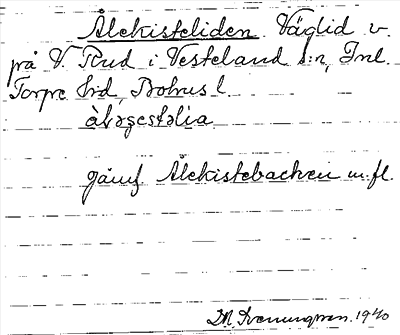 Ålekisteliden Väglid v.
på V. Röd i Vesteland s:n, Inl.
Torpe hd, Bohus l.
àləçestəlia
jämf Ålekistebacken m.fl.
1940